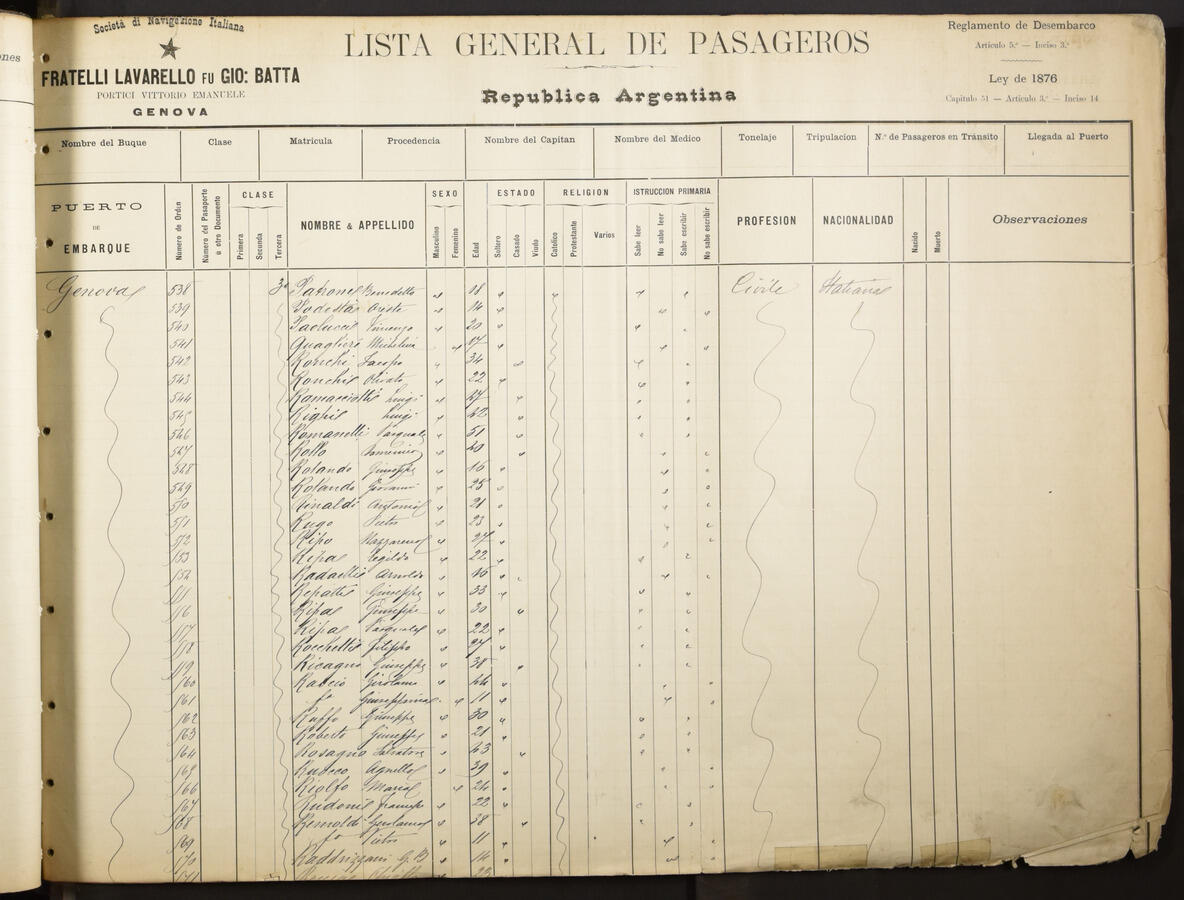 nes
Società di Navigazione Italiana
FRATELLI LAVARELLO FU GIO: BATTA
PORTICI VITTORIO EMANUELE
GENOVA
LISTA GENERAL DE PASAGEROS
Republica Argentina
Reglamento de Desembarco
Artículo 5.º — Inciso 3.º
Ley de 1876
Capítulo 51 — Artículo 3.º — Inciso 14
Nombre del Buque Clase Matricula Procedencia Nombre del Capitan Nombre del Medico Tonelaje Tripulacion N.º de Pasageros en Tránsito Llegada al Puerto
PUERTO DE EMBARQUE
Número de Orden
Número del Pasaporte u otro Documento
CLASE
Primera Secunda Tercera
NOMBRE & APPELLIDO
SEXO
Masculino Femenino
Edad
ESTADO
Soltero Casado Viudo
RELIGION
Catolico Protestante Varios
ISTRUCCION PRIMARIA
Sabe leer No sabe leer Sabe escribir No sabe escribir
PROFESION
NACIONALIDAD
Nacido Muerto
Observaciones
Genova 538 3ª Benedetto 18 Civile Italiana
539 Oreste 14
540 Paolucci 20
541 Michelina 17
542 Ronchi Jacopo 34
543 Ronchi 22
544 Ramacciotti Luigi 27
545 Righi Luigi
546 Romanelli Pasquale 51
547 Rollo Domenico
548 Rolando Giuseppe 16
549 Rolando Giovanni 25
550 Rinaldi Antonio 21
551 Rugo Pietro 23
552 Ripa Nazzareno 27
553 Ripa Egildo 22
554 Radaelli Arnoldo 16
Giuseppe 33
556 Ripa Giuseppe 30
557 Ripa Pasquale 22
558 Rocchetti Filippo 27
559 Ricagno Giuseppe 38
560 Girolamo 44
561 Giuseppina 11
562 Ruffo Giuseppe 30
563 Roberto Giuseppe 21
564 Rosagno Salvatore
565 Ruocco Agnello 39
566 Riolfo Maria 24
567 22
568 Girolamo 38
569 Pietro 11
570 Raddrizzani G. B. 14
571